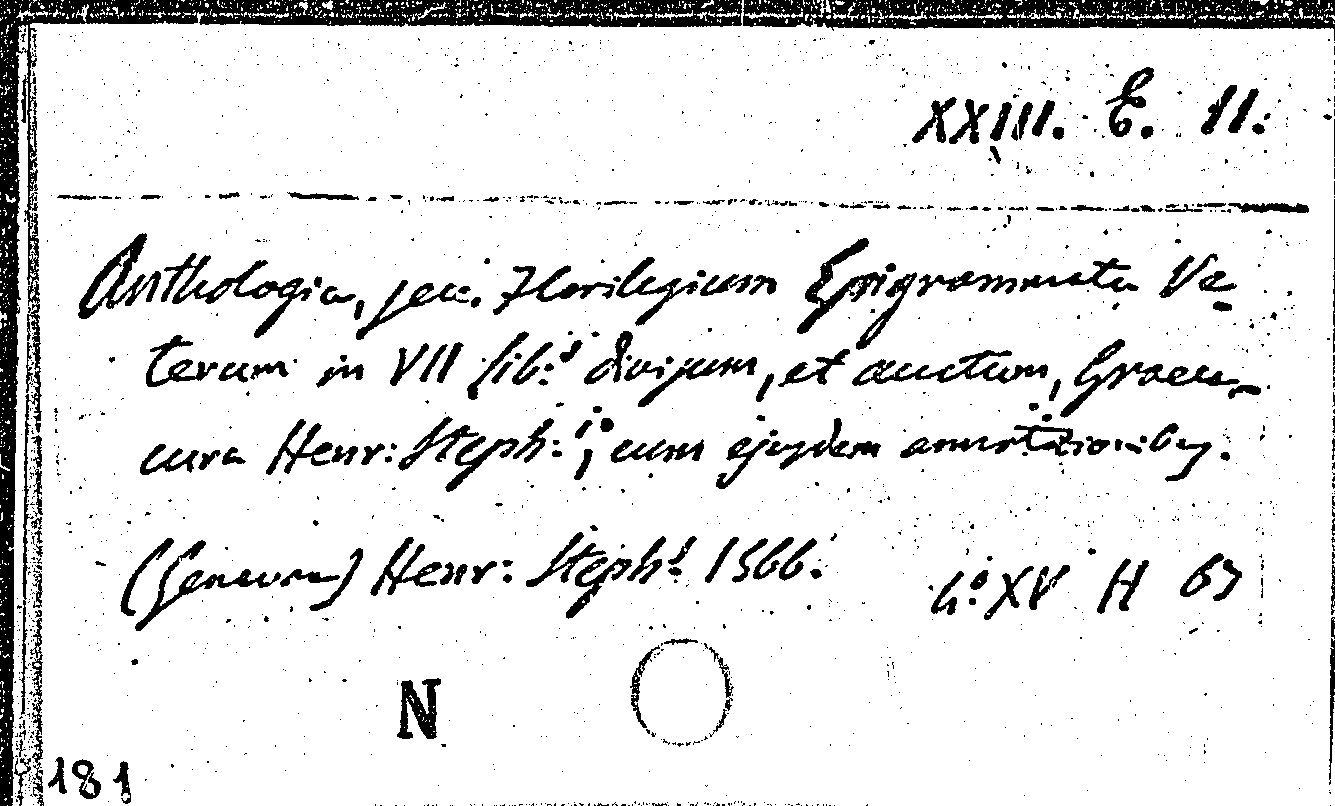 XXIII. E. 11.
Anthologia, seu. Florilegium Epigrammata Ve-
terum in VII lib:s divisum, et auctum, Graece,
cura Henr: Steph:i; cum ejusdem annotationibus.
(Genevae) Henr: Steph:i 1566. 4:o XV H 69
N
181